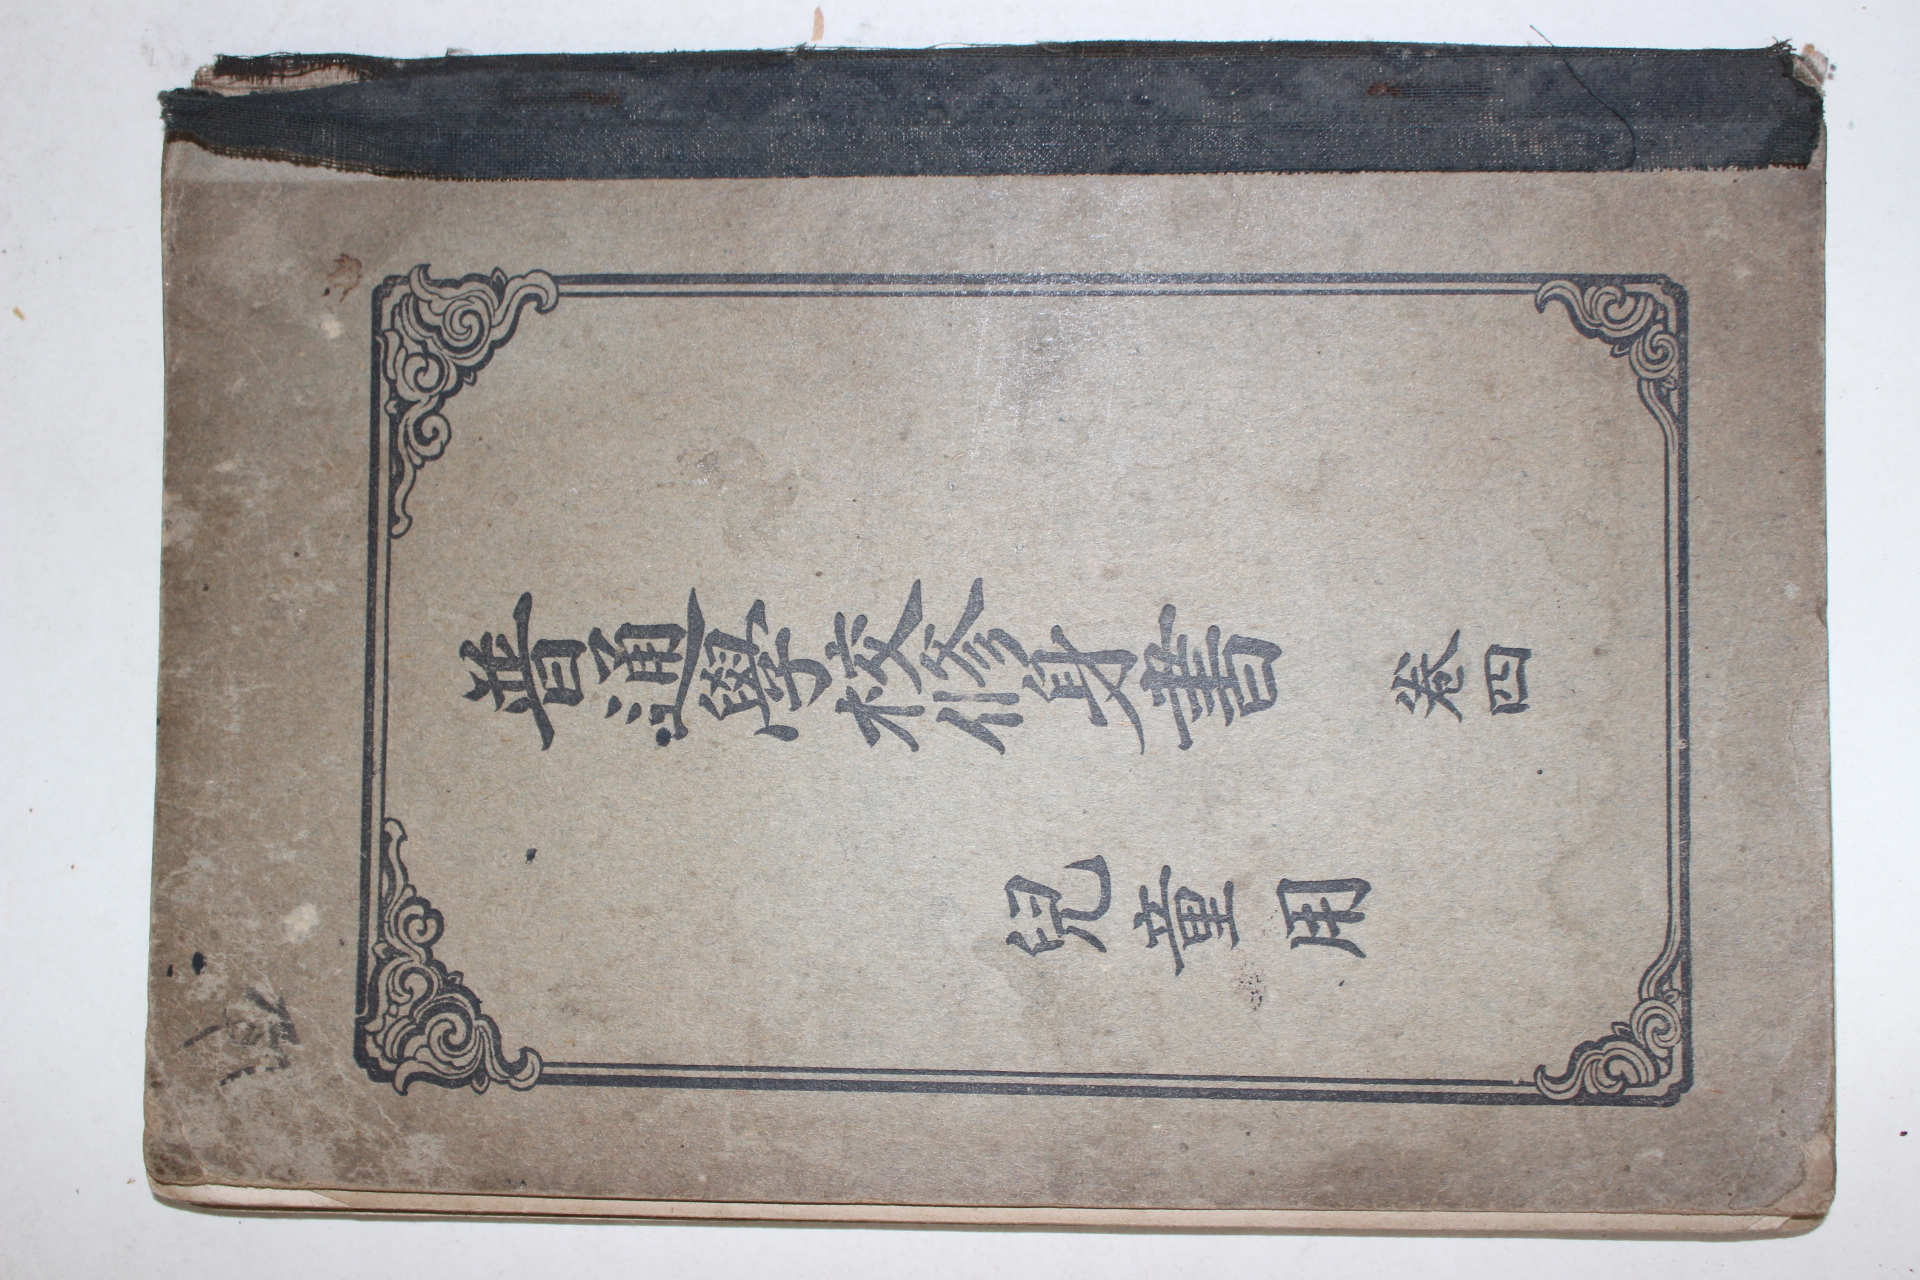 普通學校修身書 卷四
兒童用